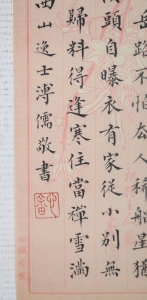 岳路不怕太人稀船星猶
傾頭自曝衣有家從小別無
歸料得逢寒住當禪雪滿
西山逸士溥儒敬書